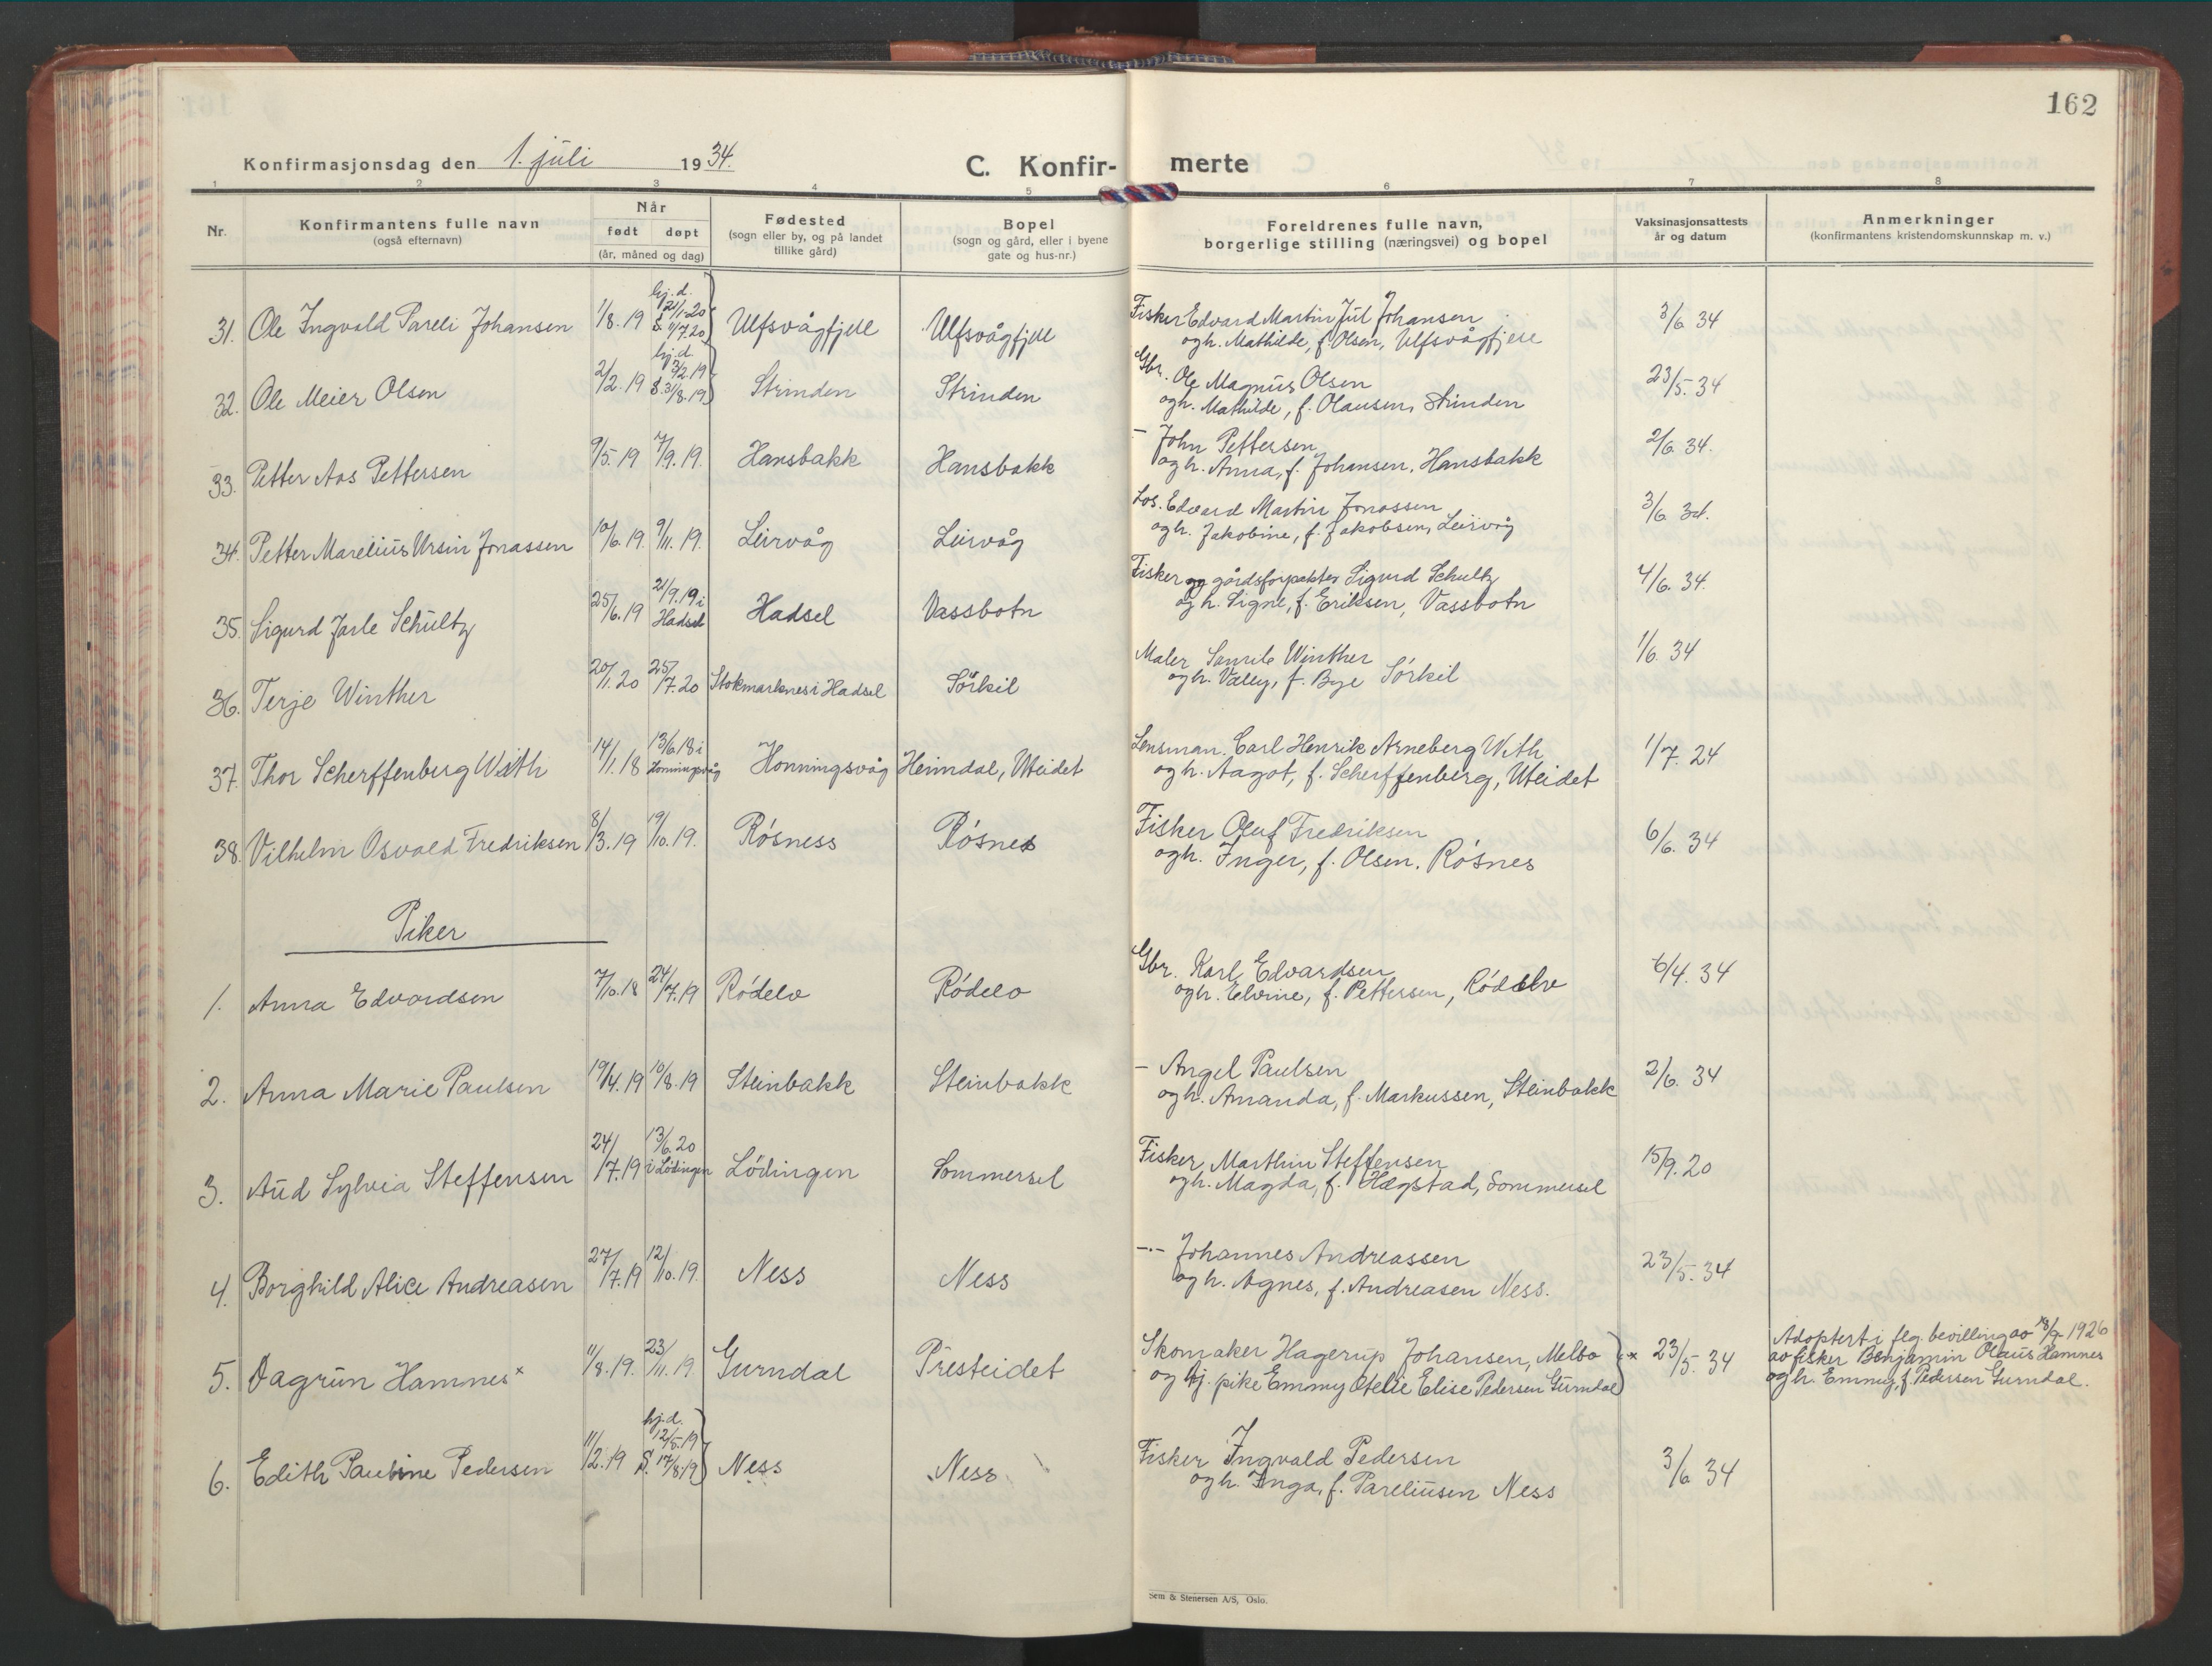 162
Konfirmasjonsdag den 1. juli 1934.
C. Konfir- merte
1 2 3 4 5 6 7 8
Nr.
Konfirmantens fulle navn
(også efternavn)
Når
født døpt
(år, måned og dag)
Fødested
(sogn eller by, og på landet
tillike gård)
Bopel
(sogn og gård, eller i byene
gate og hus-nr.)
Foreldrenes fulle navn,
borgerlige stilling (næringsvei) og bopel
Vaksinasjonsattests
år og datum
Anmerkninger
(konfirmantens kristendomskunnskap m. v.)
31. Ole Ingvald Pareli Johansen 1/8.19 hj.d. 21/1.20 S. 11/7.20 Ulfsvågfjell Ulfsvågfjell Fisker Edvard Martin Jul Johansen 3/6 34
og h. Mathilde, f. Olsen, Ulfsvågfjell
32. Ole Meier Olsen 2/2.19 hj.d. 3/2.19 S. 31/8.19 Strinden Strinden Gbr. Ole Magnus Olsen 23/5.34
og h. Mathilde, f. Olausen, Strinden
33. Petter Aas Pettersen 9/5.19 7/9.19. Hansbakk Hansbakk – John Pettersen 2/6 34.
og h. Anna, f. Johansen, Hansbakk
34. Petter Marelius Ursin Jonassen 10/6.19. 9/11.19. Leirvåg Leirvåg Los. Edvard Martin Jonassen 3/6 34.
og h. Jakobine, f. Jakobsen, Leirvåg
35. Sigurd Jarle Schultz 25/6.19 21/9.19 i Hadsel Hadsel Vassbotn Fisker og gårdsforpakter Sigurd Schultz 4/6. 34.
og h. Signe, f. Eriksen, Vassbotn
36. Terje Winther 20/1.20 25/7.20 Stokmarknes i Hadsel Sørkil Maler Winther 1/6. 34
og h. Valley, f. Bye Sørkil
37. Thor Scherffenberg With 14/1.18 13/6.18 i Honningsvåg Honningsvåg Heimdal, Uteidet Lensman. Carl Henrik Arneberg With 1/7. 24
og h. Aagot, f. Scherffenberg, Uteidet
38. Vilhelm Osvald Fredriksen 8/3.19 19/10.19. Røsness Røsnes Fisker Oluf Fredriksen 6/6. 34
og h. Inger, f. Olsen. Røsnes
Piker
1. Anna Edvardsen 7/10.18 24/7.19 Rødelv Rødelv Gbr. Karl Edvardsen 6/4. 34
og h. Elvine, f. Pettersen, Rødelv
2. Anna Marie Paulsen 19/4.19 10/8.19 Steinbakk Steinbakk – Angel Paulsen 2/6. 34
og h. Amanda, f. Markussen, Steinbakk
3. Aud Sylvia Steffensen 24/7.19 13/6.20 i Lødingen Lødingen Sommersel Fisker Marthin Steffensen 15/9. 20
og h. Magda, f. Hægstad, Sommersel
4. Borghild Alice Andreasen 27/7.19 12/10.19. Ness Ness –·– Johannes Andreassen 23/5. 34
og h. Agnes, f. Andreasen Ness.
5. Dagrun Hamnes x 11/8.19. 23/11.19 Gurndal Presteidet Skomaker Hagerup Johansen, Melbo x 23/5. 34 Adoptert i flg. bevilling av 18/9 1926
og hj. pike Emmy Otelie Elise Pedersen Gurndal av fisker Benjamin Olaus Hamnes
og h. Emmy, f. Pedersen Gurndal.
6. Edith Pauline Pedersen 11/2.19 hj.d. 12/5.19 S. 17/8.19 Ness Ness Fisker Ingvald Pedersen 3/6 34
og h. Inga, f. Pareliusen Ness
Sem & Stenersen A/S, Oslo.